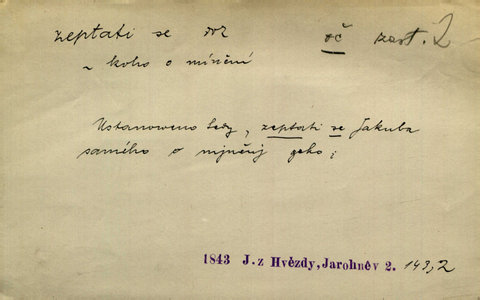 zeptati se dok oč zast. 2
~ koho o mínění
Ustanoweno tedy, zeptati se Jakuba
samého o mjněnj geho;
1843 J. z Hvězdy, Jarohněv 2. 143,2